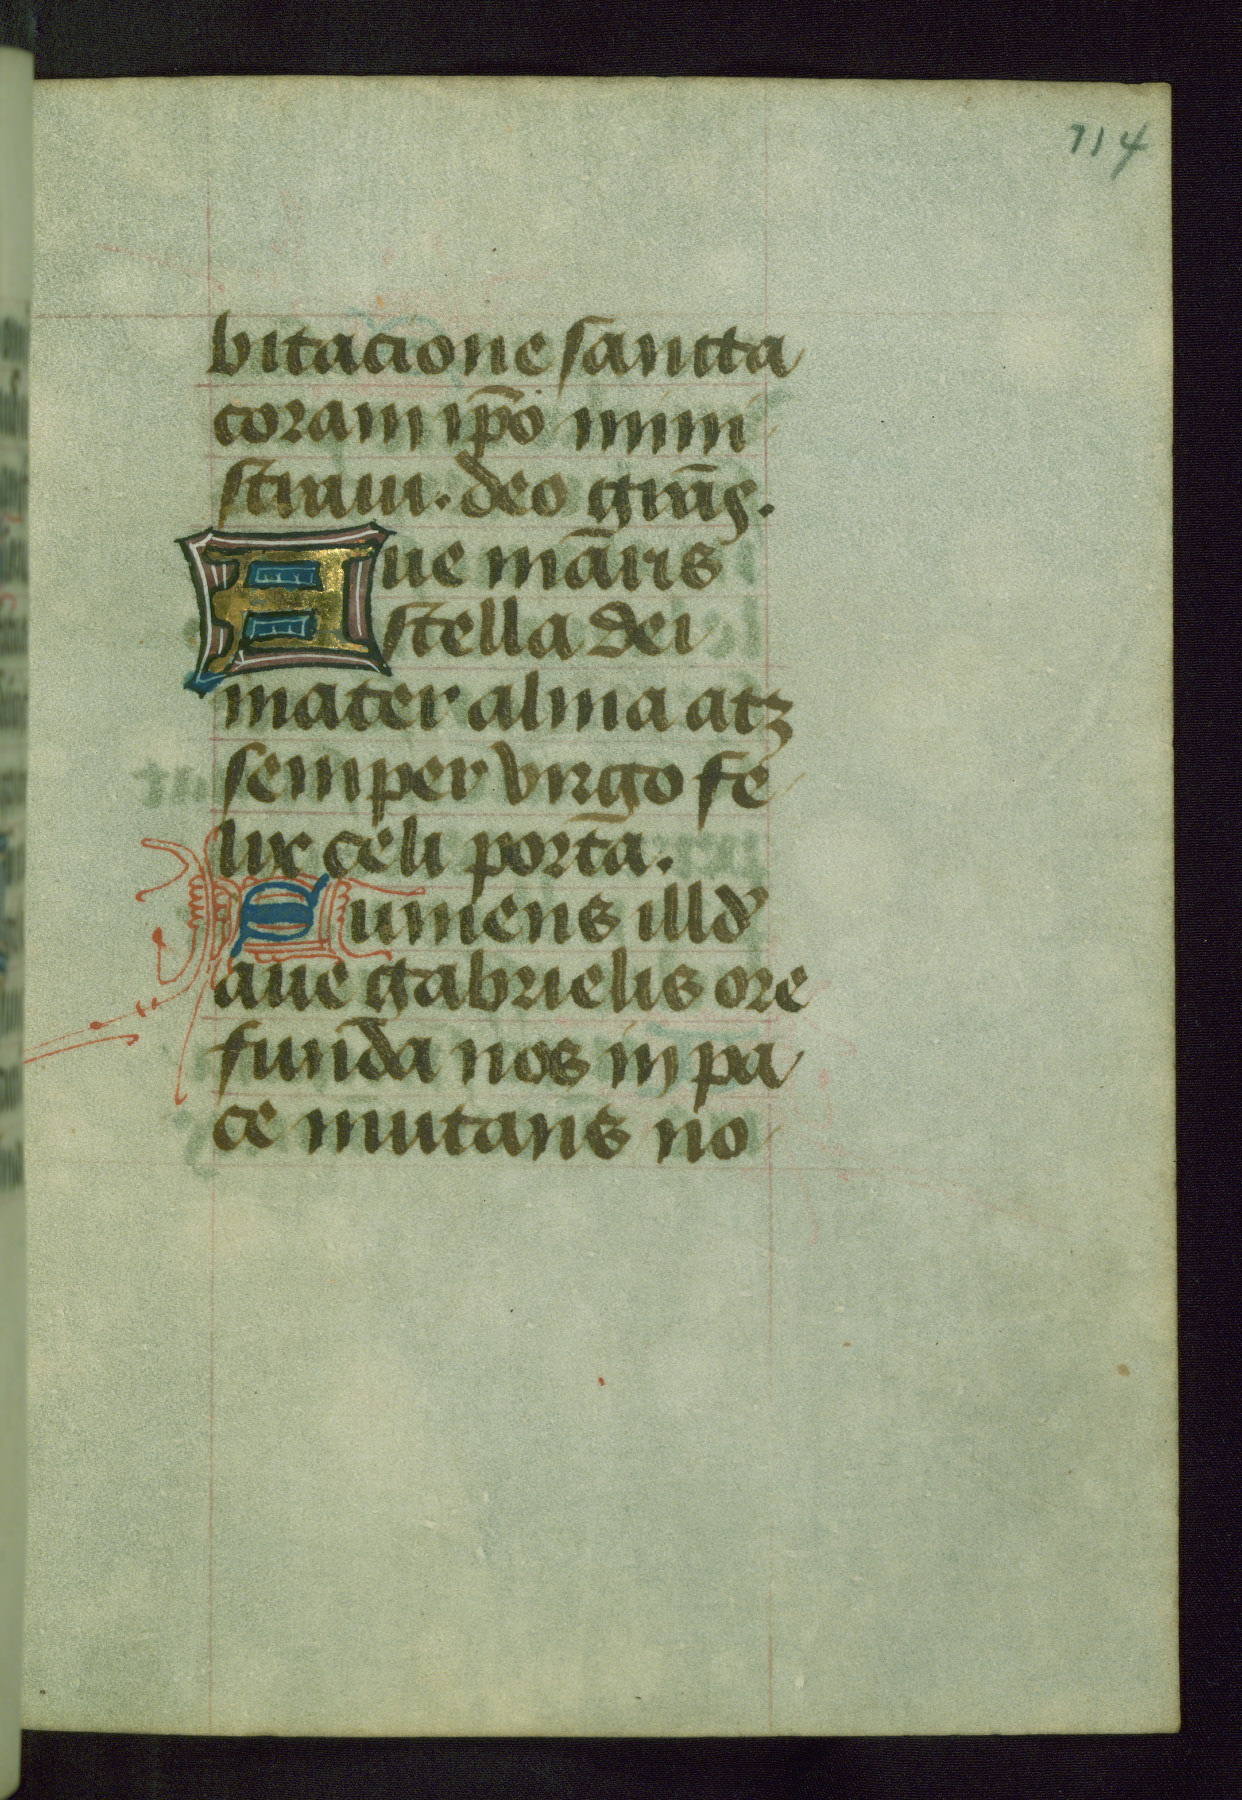 114
bitacione sancta
coram ip̄o mini
straui. deo grãs.
Aue māris
stella dei
mater alma atqꝫ
semper virgo fe
lix celi porta.
Sumens illd̕
aue gabrielis ore
funda nos in pa
ce mutans no